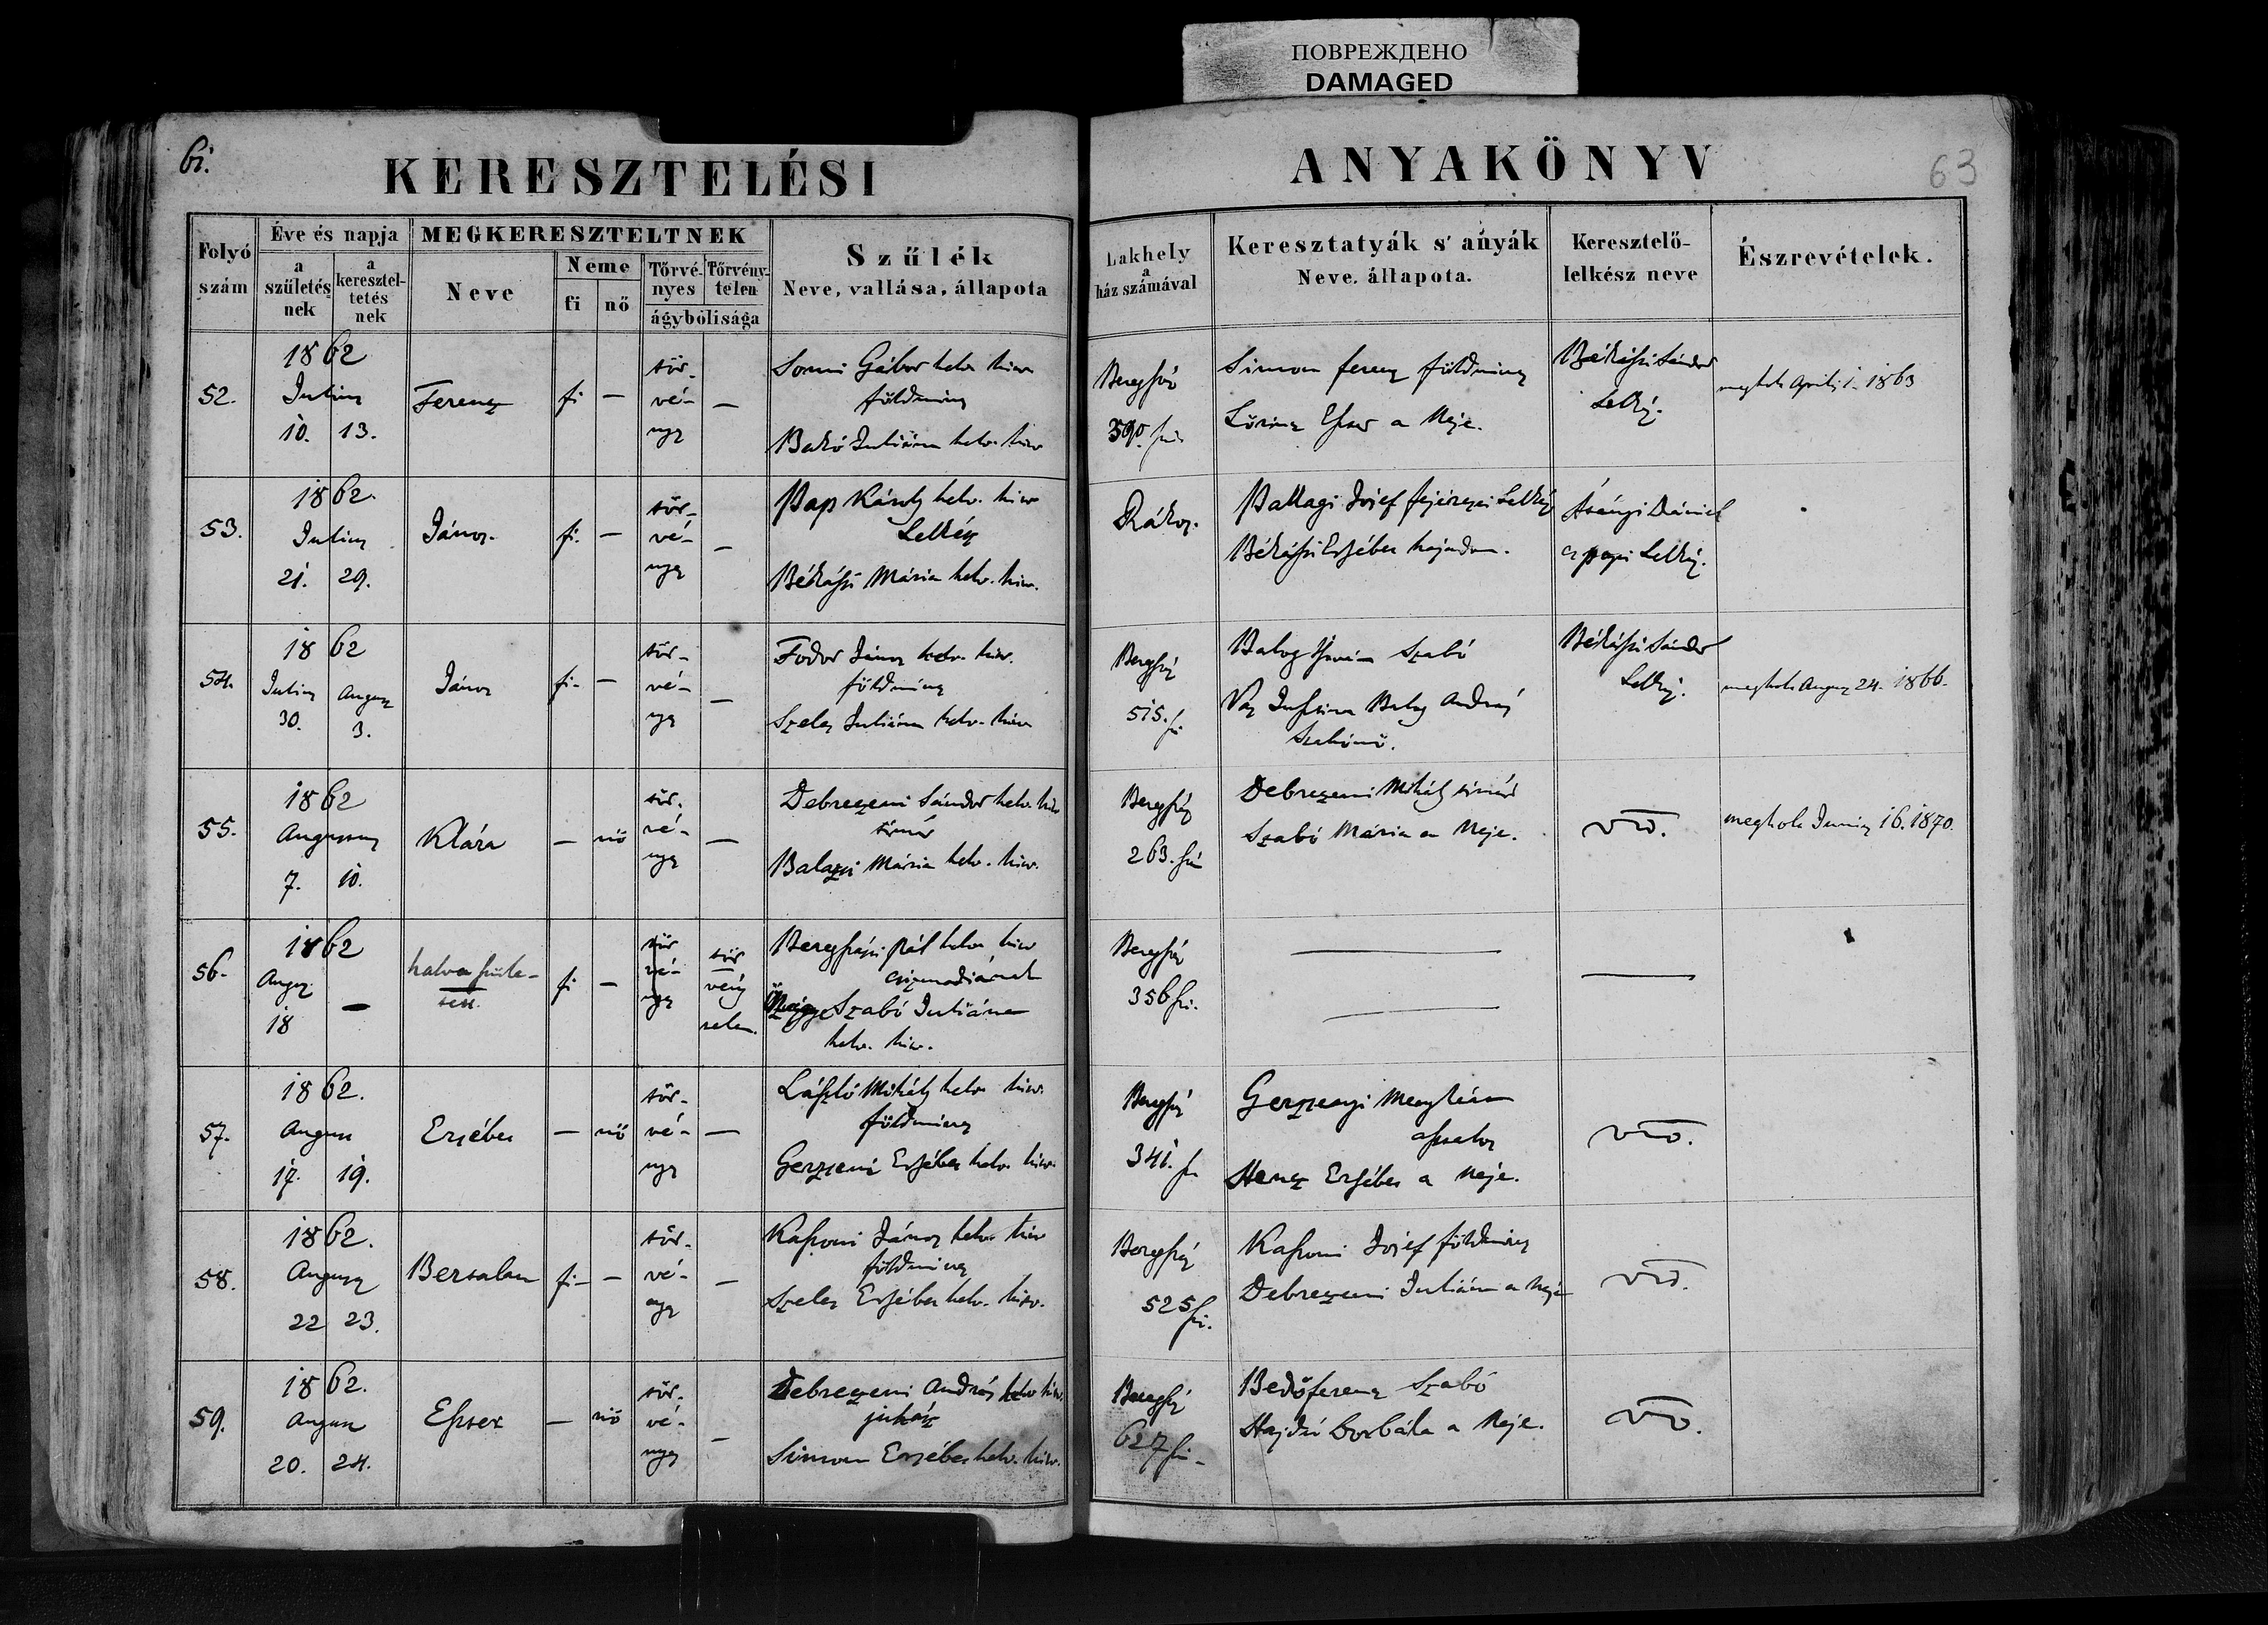 ПОВРЕЖДЕНО
DAMAGED
61.
KERESZTELÉSI
ANYAKÖNYV
63
Folyó szám
Éve és napja
a születésnek
a kereszteltetésnek
MEGKERESZTELTNEK
Neve
Neme
fi
nő
Törvényes
Törvénytelen
ágybólisága
Szűlék
Neve, vallása, állapota
Lakhely
a
ház számával
Keresztatyák s' anyák
Neve. állapota.
Keresztelő-
lelkész neve
Észrevételek.
52.
1862
Julius
10. 13.
Ferencz
fi —
tör-
vé-
nyes
—
Somi Gábor helv. hitv.
földmives
Bakó Juliána helv. hitv.
Beregszász
390. sz.
Simon Ferencz földmives
Lőrincz Eszter a Neje.
Békássi Sándor
Lelkész.
megholt April. 1. 1863
53.
1862.
Julius
21. 29.
János.
fi. —
tör-
vé-
nyes
—
Pap Károly helv. hitv.
Lelkész
Békássi Mária helv. hitv.
Rákos.
Ballagi Jósef Lelkész
Békássi Erzsébet hajadon.
Dániel
Lelkész.
54.
1862
Julius 30.
August 3.
János
fi- —
tör-
vé-
nyes
—
Fodor János helv. hitv.
földmives
Szeles Juliána helv. hitv.
Beregszász
515. sz.
Balog István Szabó
Vas Jusztina Balog András
Szabónő.
Békássi Sándor
Lelkész.
megholt August 24. 1866.
55.
1862
Augustus
7. 10.
Klára
— nő
tör.
vé-
nyes
—
Debreczeni Sándor helv. hitv.
timár
Balazsi Mária helv. hitv.
Beregszász
263. sz.
Debreczeni Mihály timár
Szabó Mária a Neje.
megholt Junius 16. 1870.
56.
1862
August
18 —
halva szüle-
tett.
fi —
tör
vé-
nyes
tör
vény
telen.
Beregszászi Pál helv. hitv.
csizmadiának
Özvegye Szabó Juliána
helv. hitv.
Beregszász
356 sz.
57.
1862.
August
17. 19.
Erzsébet
— nő
tör-
vé-
nyes
—
László Mihály helv. hitv.
földmives
Gerzseni Erzsébet helv. hitv.
Beregszász
341. sz.
Gerzsenyi Menyhért
asztalos
Hencz Erzsébet a neje.
58.
1862.
August
22 23.
Bertalan
fi- —
tör-
vé-
nyes
—
Kaszoni János helv. hitv.
földmives
Szeles Erzsébet helv. hitv.
Beregszász
525 sz.
Kaszoni Jósef földmives
Debreczeni Juliána a neje
59.
1862.
August
20. 24.
Eszter
— nő
tör-
vé-
nyes
—
Debreczeni András helv. hitv.
juhász
Simon Erzsébet helv. hitv.
Beregszász
627 sz.
Bedő Ferencz Szabó
Hajdú Borbála a Neje.